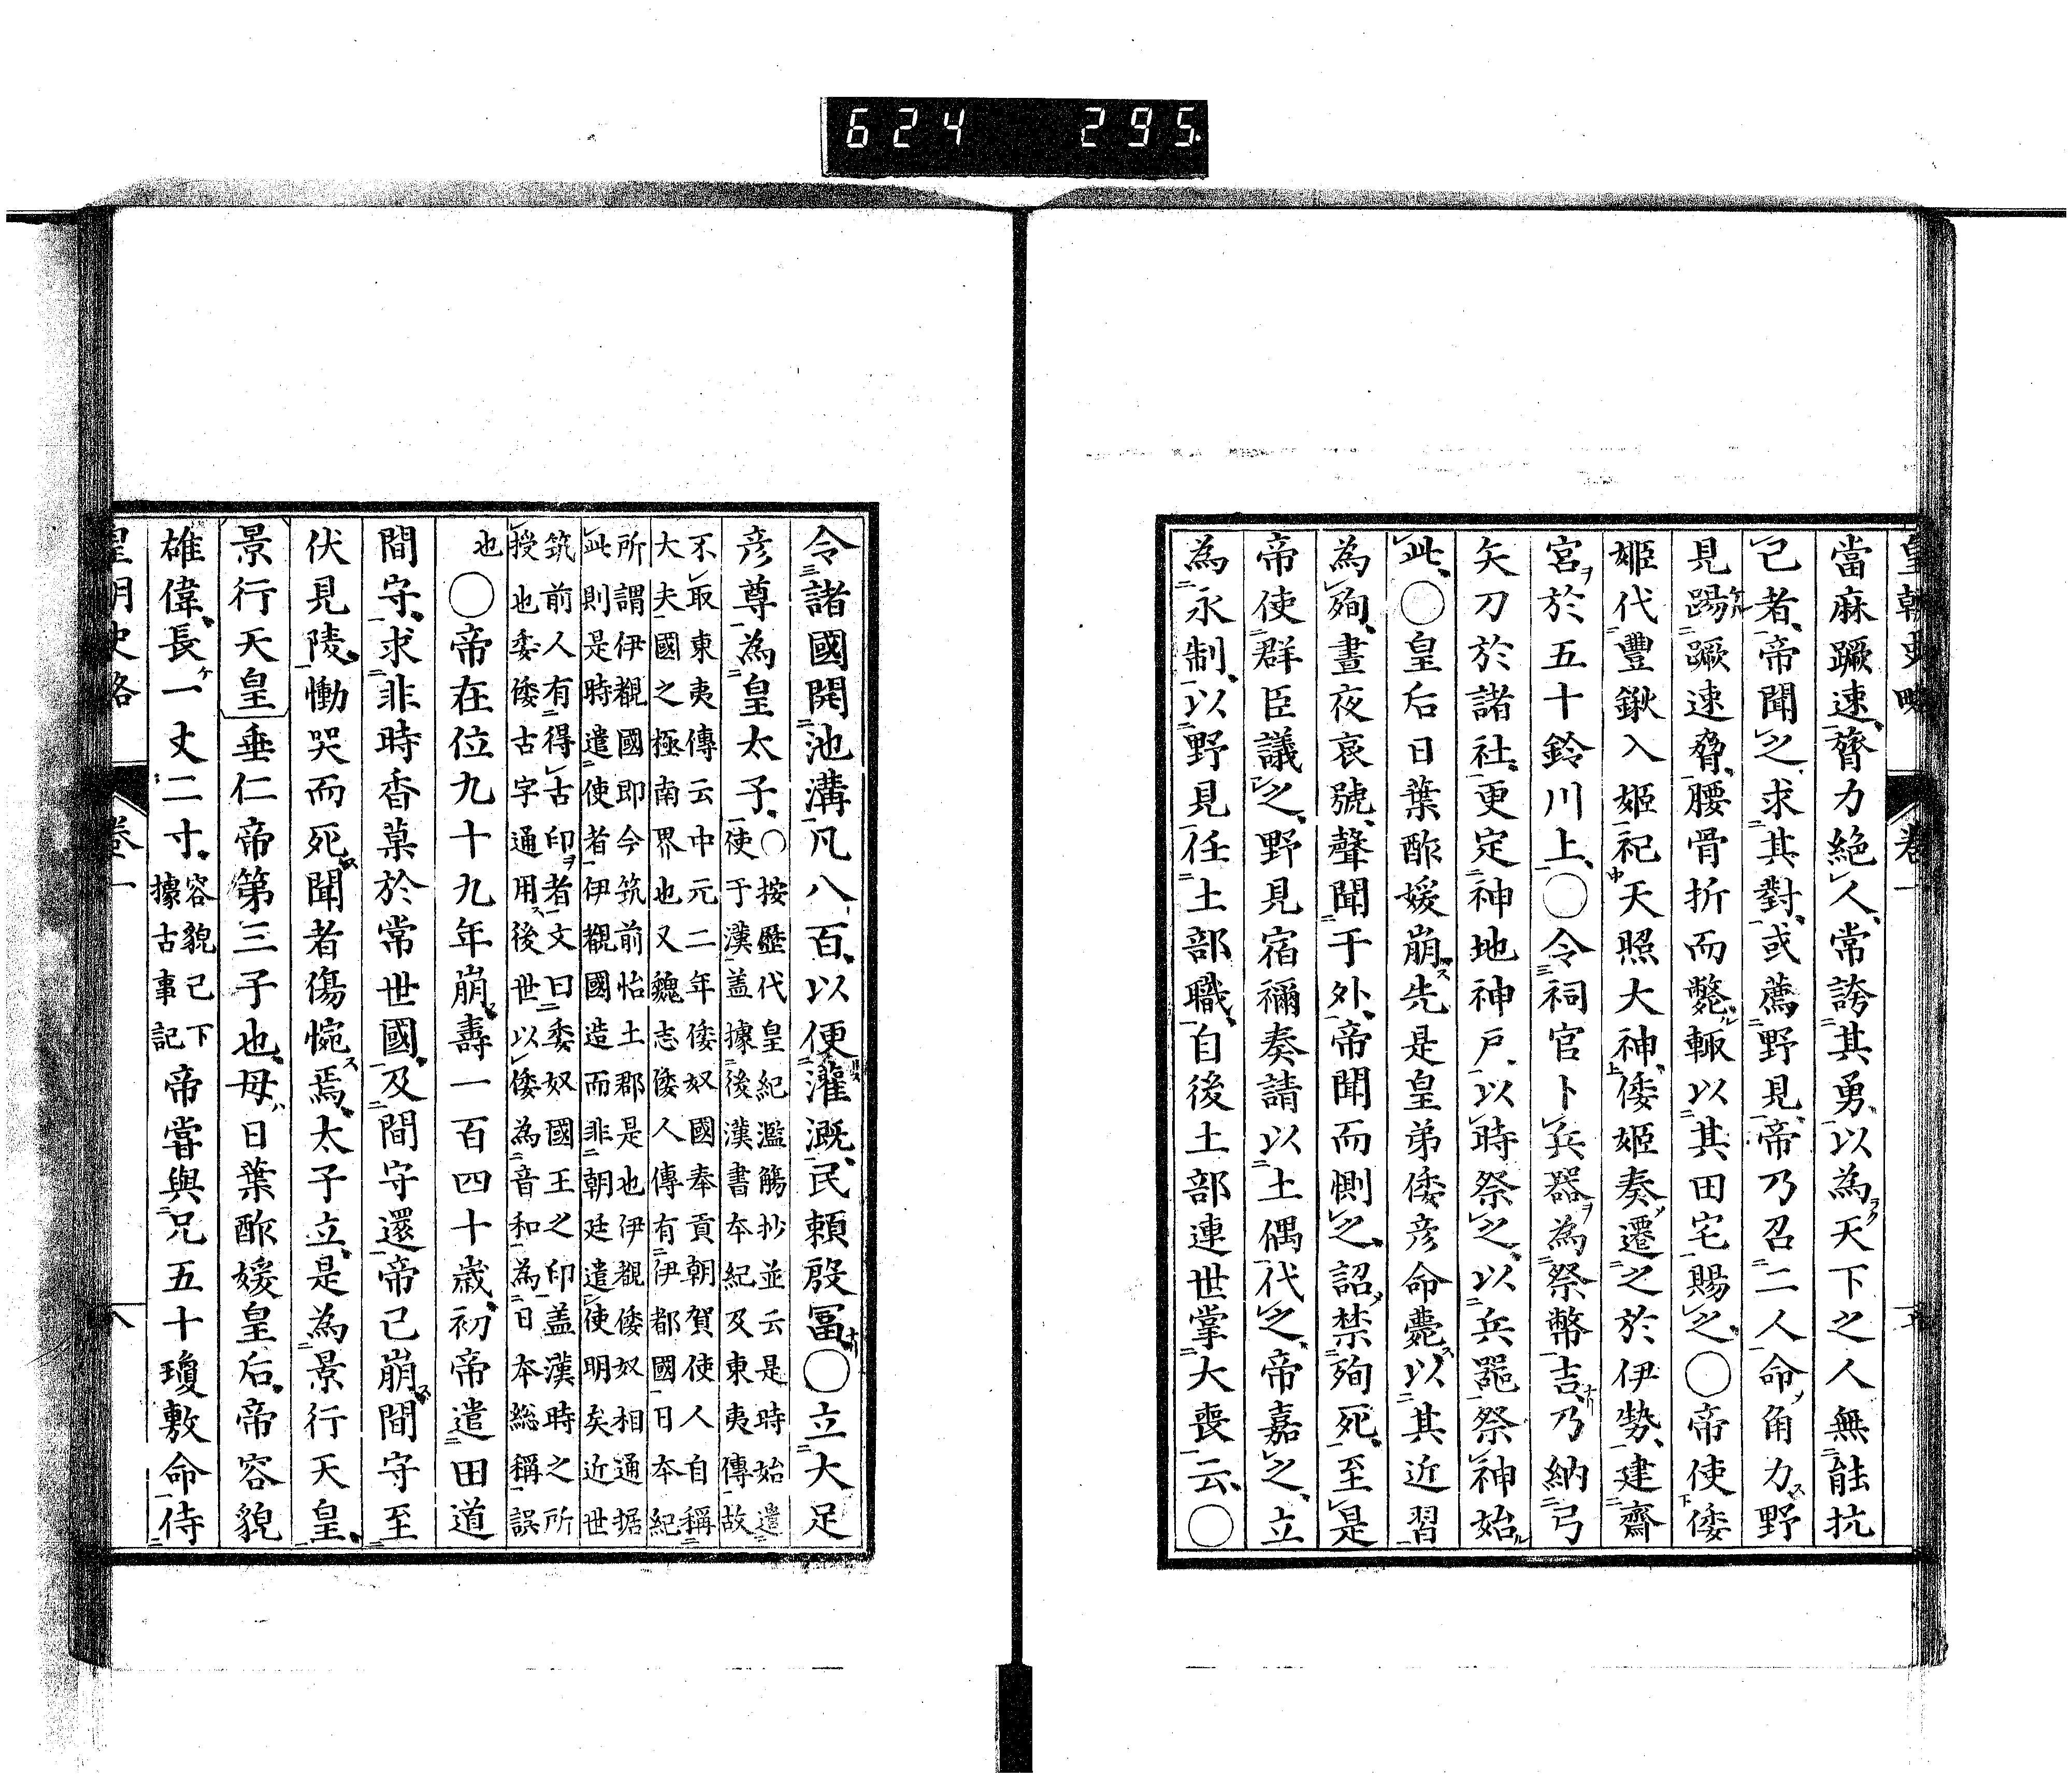 624 295
皇朝史略 卷一
當麻蹶速、膂力絕人、常誇其勇、以為天下之人無能抗
己者、帝聞之、求其對、或薦野見、帝乃召二人、命角力、野
見踢蹶速脅、腰骨折而斃、輙以其田宅賜之、○帝使倭
姬代豐鍬入姬祀天照大神、倭姬奏遷之於伊勢、建齋
宮於五十鈴川上、○令祠官卜兵器為祭幣、吉、乃納弓
矢刀於諸社、更定神地神戶、以時祭之、以兵噐祭神始
此、○皇后日葉酢媛崩、先是皇弟倭彥命薨、以其近習
為殉、晝夜哀號、聲聞于外、帝聞而惻之、詔禁殉死、至是
帝使群臣議之、野見宿禰奏請以土偶代之、帝嘉之、立
為永制、以野見任土部職、自後土部連世掌大喪云、○
令諸國開池溝凡八百、以便灌漑、民賴殷冨、○立大足
彥尊為皇太子、○按歷代皇紀濫觴抄並云是時始遣
使于漢盖據後漢書本紀及東夷傳故
不取東夷傳云中元二年倭奴國奉貢朝賀使人自稱
大夫國之極南界也又魏志倭人傳有伊都國日本紀
所謂伊覩國即今筑前怡土郡是也伊覩倭奴相通据
此則是時遣使者伊覩國造而非朝廷遣使明矣近世
筑前人有得古印者文曰委奴國王之印盖漢時之所
授也委倭古字通用後世以倭為音和為日本総稱誤
也○帝在位九十九年崩、壽一百四十歲、初帝遣田道
間守、求非時香菓於常世國、及間守還、帝已崩、間守至
伏見陵、慟哭而死、聞者傷惋焉、太子立、是為景行天皇、
景行天皇垂仁帝第三子也、母日葉酢媛皇后、帝容貌
雄偉、長一丈二寸、容貌已下
據古事記帝嘗與兄五十瓊敷命侍
皇朝史略 卷一 八